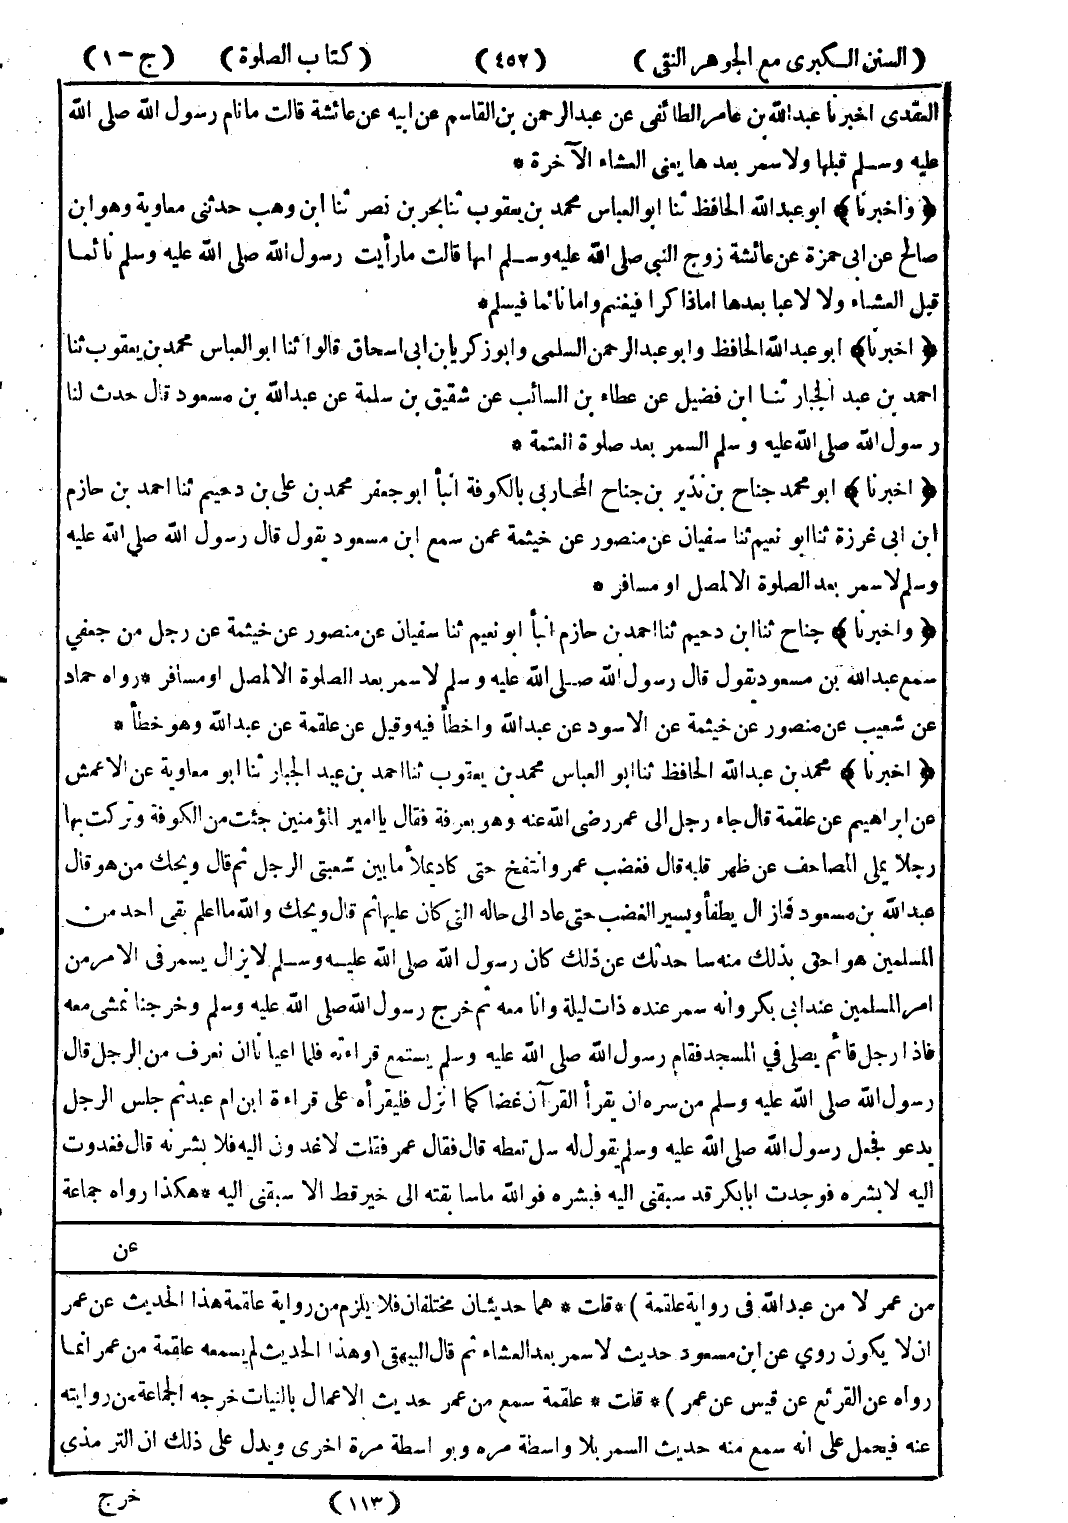 (السنن الكبرى مع الجوهر النقى) (٤٥٢) (كتاب الصلوة) (ج-١)
العقدى اخبرنا عبدالله بن عامر الطائفى عن عبدالرحمن بن القاسم عن ابيه عن عائشة قالت مانام رسول الله صلى الله
عليه وسلم قبلها ولا سمر بعدها يعنى العشاء الآخرة *
﴿ واخبرنا ﴾ ابو عبدالله الحافظ ثنا ابو العباس محمد بن يعقوب ثنا بحر بن نصر ثنا ابن وهب حدثنى معاوية وهو ابن
صالح عن ابى حمزة عن عائشة زوج النبي صلى الله عليه وسلم انها قالت مارأيت رسول الله صلى الله عليه وسلم نائما
قبل العشاء ولا لاعبا بعدها اما ذاكرا فيغنم واما نائما فيسلم *
﴿ اخبرنا ﴾ ابو عبدالله الحافظ وابو عبدالرحمن السلمى وابو زكريا بن ابى اسحاق قالوا ثنا ابو العباس محمد بن يعقوب ثنا
احمد بن عبد الجبار ثنا ابن فضيل عن عطاء بن السائب عن شقيق بن سلمة عن عبدالله بن مسعود قال حدث لنا
رسول الله صلى الله عليه وسلم السمر بعد صلوة العتمة *
﴿ اخبرنا ﴾ ابو محمد جناح بن نذير بن جناح المحاربى بالكوفة انبأ ابو جعفر محمد بن على بن دحيم ثنا احمد بن حازم
ابن ابى غرزة ثنا ابو نعيم ثنا سفيان عن منصور عن خيثمة عمن سمع ابن مسعود يقول قال رسول الله صلى الله عليه
وسلم لا سمر بعد الصلوة الا لمصل او مسافر *
﴿ واخبرنا ﴾ جناح ثنا ابن دحيم ثنا احمد بن حازم انبأ ابو نعيم ثنا سفيان عن منصور عن خيثمة عن رجل من جعفي
سمع عبدالله بن مسعود يقول قال رسول الله صلى الله عليه وسلم لا سمر بعد الصلوة الا لمصل او مسافر * رواه حماد
عن شعيب عن منصور عن خيثمة عن الاسود عن عبدالله واخطأ فيه وقيل عن علقمة عن عبدالله وهو خطأ *
﴿ اخبرنا ﴾ محمد بن عبدالله الحافظ ثنا ابو العباس محمد بن يعقوب ثنا احمد بن عبد الجبار ثنا ابو معاوية عن الاعمش
عن ابراهيم عن علقمة قال جاء رجل الى عمر رضى الله عنه وهو بعرفة فقال يا امير المؤمنين جئت من الكوفة وتركت بها
رجلا يملى المصاحف عن ظهر قلبه قال فغضب عمر وانتفخ حتى كاد يملأ ما بين شعبتى الرحل ثم قال ويحك من هو قال
عبدالله بن مسعود فمازال يطفأ ويسير الغضب حتى عاد الى حاله التى كان عليها ثم قال ويحك والله ما اعلم بقى احد من
المسلمين هو احق بذلك منه سا حدثك عن ذلك كان رسول الله صلى الله عليه وسلم لا يزال يسمر فى الامر من
امر المسلمين عند ابى بكر وانه سمر عنده ذات ليلة وانا معه ثم خرج رسول الله صلى الله عليه وسلم وخرجنا نمشى معه
فاذا رجل قائم يصلى في المسجد فقام رسول الله صلى الله عليه وسلم يستمع قراءته فلما اعيانا ان نعرف من الرجل قال
رسول الله صلى الله عليه وسلم من سره ان يقرأ القرآن غضا كما انزل فليقرأه على قراءة ابن ام عبد ثم جلس الرجل
يدعو فجعل رسول الله صلى الله عليه وسلم يقول له سل تعطه قال فقال عمر فقلت لاغدون اليه فلا بشرنه قال فغدوت
اليه لابشره فوجدت ابابكر قد سبقنى اليه فبشره فوالله ماسابقته الى خير قط الا سبقنى اليه * هكذا رواه جماعة
عن
من عمر لا من عبدالله فى رواية علقمة) * قلت * هما حديثان مختلفان فلا يلزم من رواية علقمة هذا الحديث عن عمر
ان لا يكون روي عن ابن مسعود حديث لا سمر بعد العشاء ثم قال البيهقى (وهذا الحديث لم يسمعه علقمة من عمر انما
رواه عن القرثع عن قيس عن عمر) * قلت * علقمة سمع من عمر حديث الاعمال بالنيات خرجه الجماعة من روايته
عنه فيحمل على انه سمع منه حديث السمر بلا واسطة مره وبواسطة مرة اخرى ويدل على ذلك ان الترمذى
(١١٣) خرج